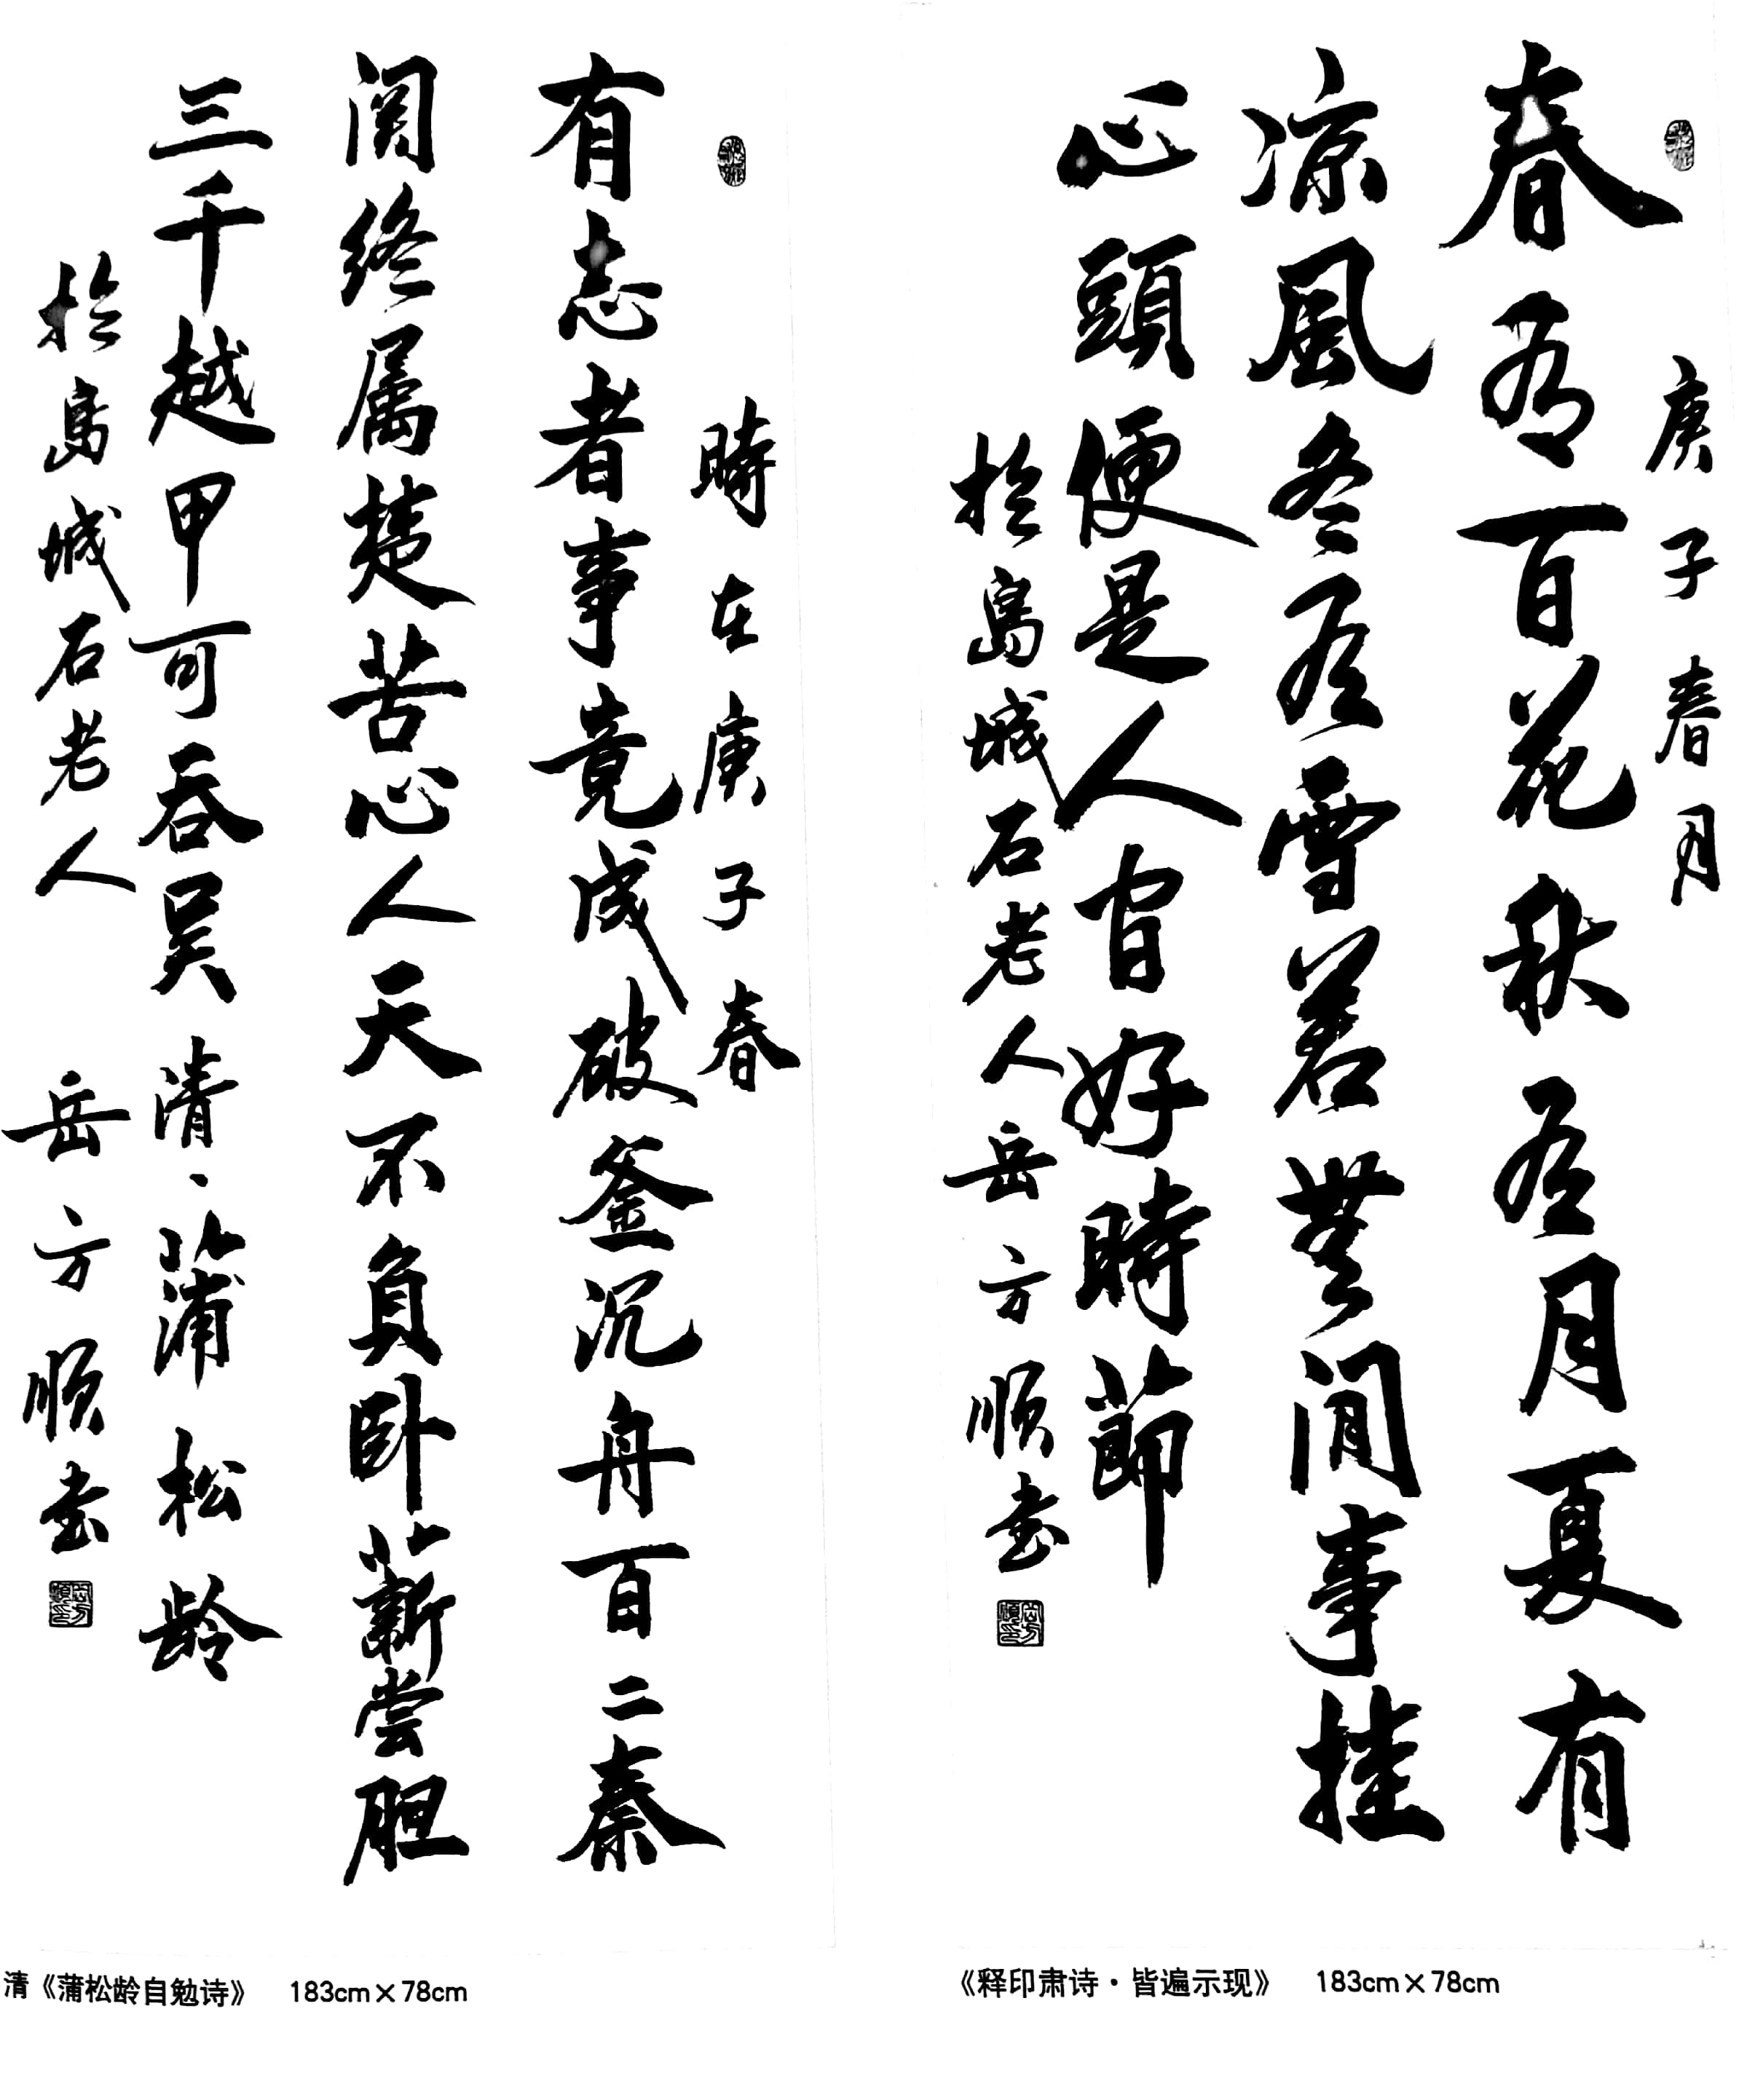 庚子春月
春有百花秋有月夏有
凉風冬有雪若無閒事挂
心頭便是人間好時節
於島城石老人岳方順書
岳方順印
《释印肃诗·皆遍示现》 183cm×78cm
時在庚子春
有志者事竟成破釜沉舟百二秦
関終属楚苦心人天不負卧薪尝胆
三千越甲可吞吴 清·蒲松龄
於島城石老人 岳方順書
岳方順印
清《蒲松龄自勉诗》 183cm×78cm